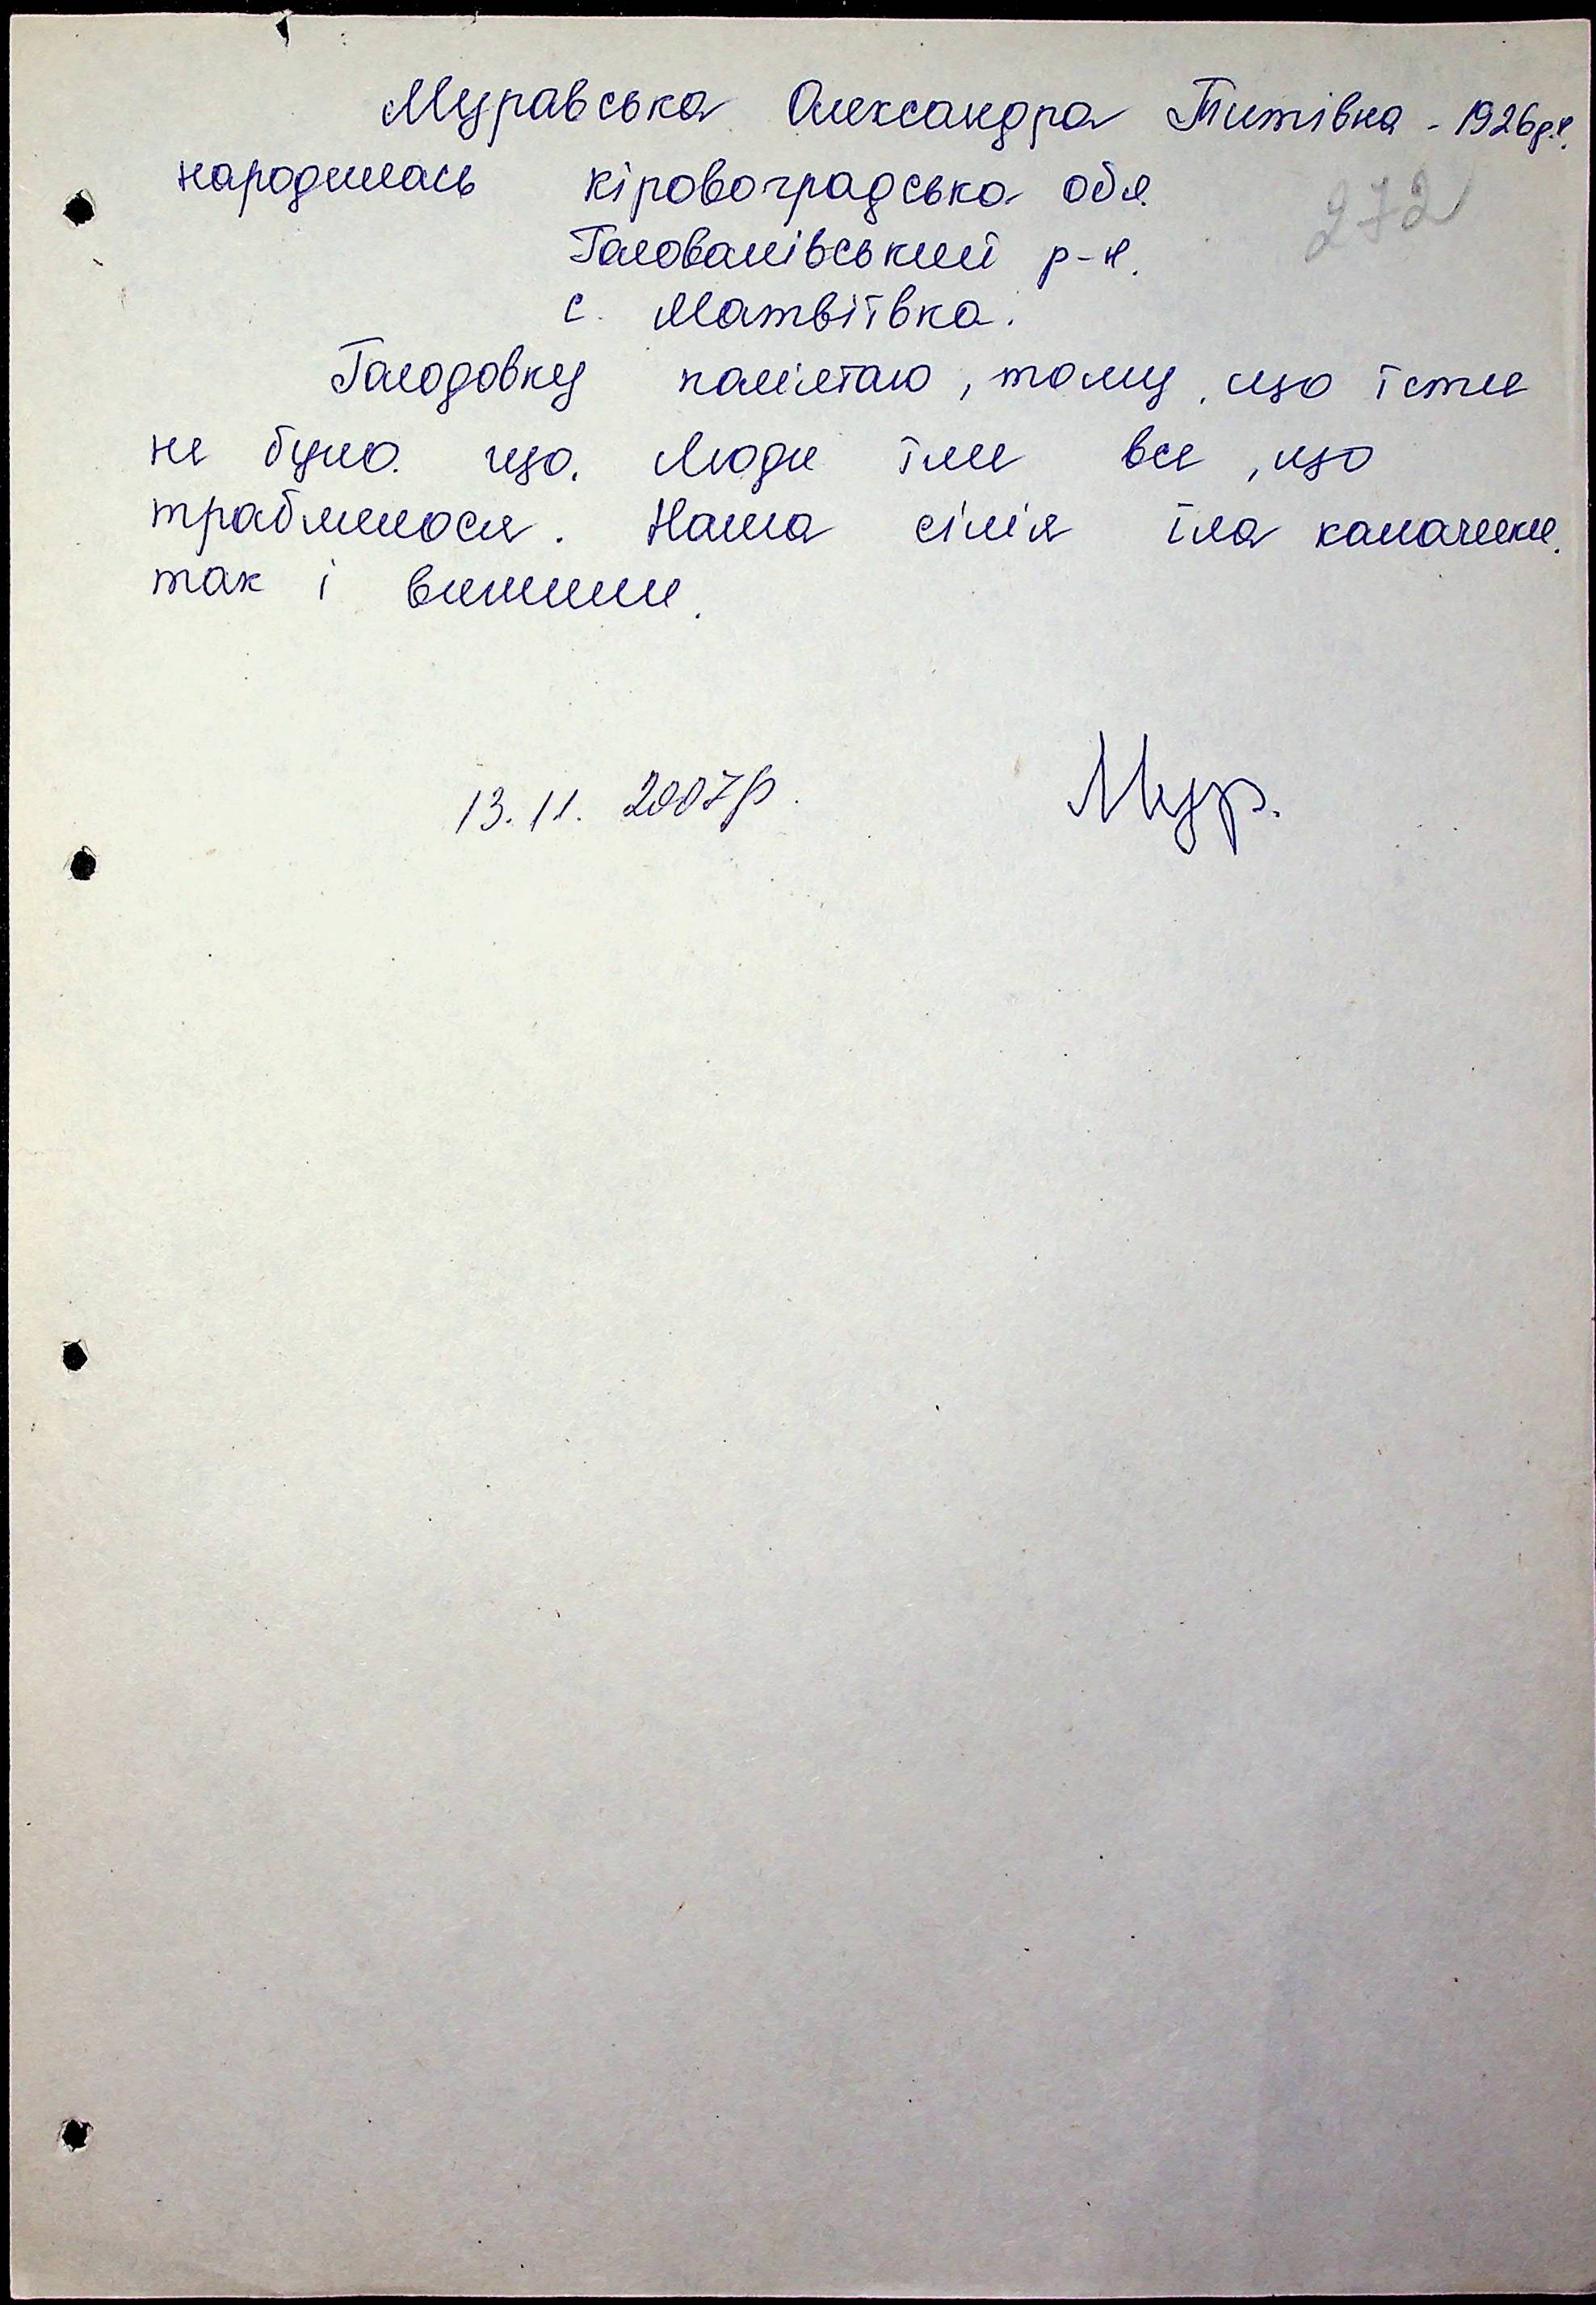 Муравська Олександра Титівна - 1926р.н.
народилась кіровоградська обл.
272
Голованівський р-н.
с. Матвіївка.
Голодовку памʼятаю, тому, що їсти
не було що. Люди їли все, що
траблилося. Наша сімія їла калачики.
так і вижили.
13.11. 2007р. Мур.